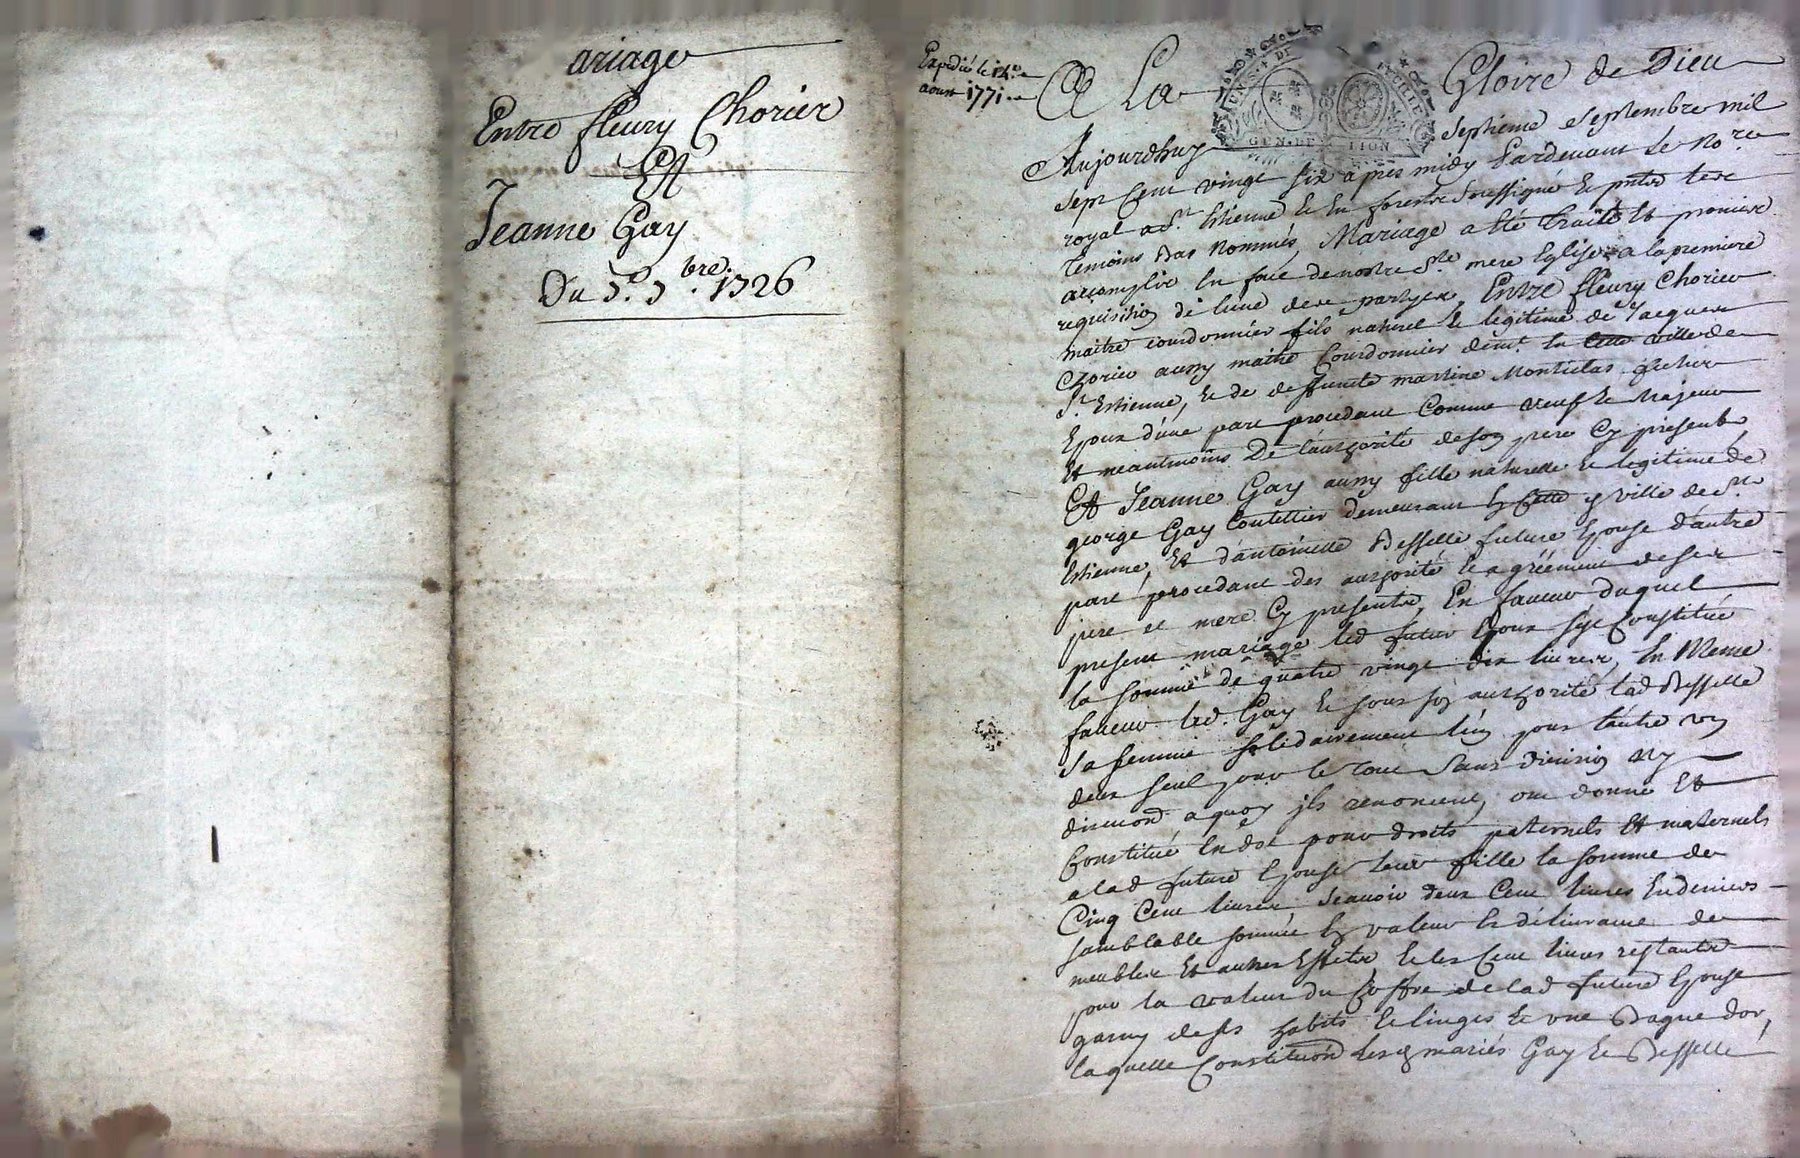 ariage
Entre fleury Chorier
Et
Jeanne Gay
Du 7e. 7bre. 1726
Expedié le 14e
aoust 1771
A La Gloire de Dieu
GEN. DE LION
Aujourdhuy septieme septembre mil
sept cent vingt six apres midy Pardevant le Nore
royal a St. Estienne de en forests soussigné et pnts les
temoins bas nommés Mariage a été traitté et promis
accomplir en face de nostre Ste. mere Eglise a la premiere
requisition de l'une des partyes, Entre fleury Chorier
maitre courdonnier fils naturel et legitime de Jacques
Chorier aussy maitre Courdonnier demt. en cette ville de
St. Estienne, et de deffunte martine Montielas futur
Epoux d'une part procedant comme veuf et majeur
et neantmoins De l'authorité de son pere Cy present
Et Jeanne Gay aussy fille naturelle et legitime de
george Gay Coutellier demeurant en cette ville de St.
Estienne, et d'antoinette Besselle future Epouse d'autre
part procedant des authorité et agréement de ses
pere et mere Cy presents, En faveur duquel
present mariage led futur Epoux s'est Constitué
la somme de quatre vingt dix livres, En Meme
faveur led. Gay et sous son authorité lad Besselle
sa femme solidairement l'un pour l'autre un
deux seul pour le tout sans division ny
discution a quoy ils renoncent, ont donné Et
Constitué En dot pour droits paternels Et maternels
a lad future Epouse leur fille la somme de
Cinq Cent livres sçavoir deux Cent livres En deniers
samblable somme En valeur et délivrance de
meubles Et autres Effets et les Cent livres restants
pour la valeur du Coffre de lad future Epouse
garny de ses habits et linges et une Bague d'or,
laquelle Constitution lesd mariés Gay et Besselle